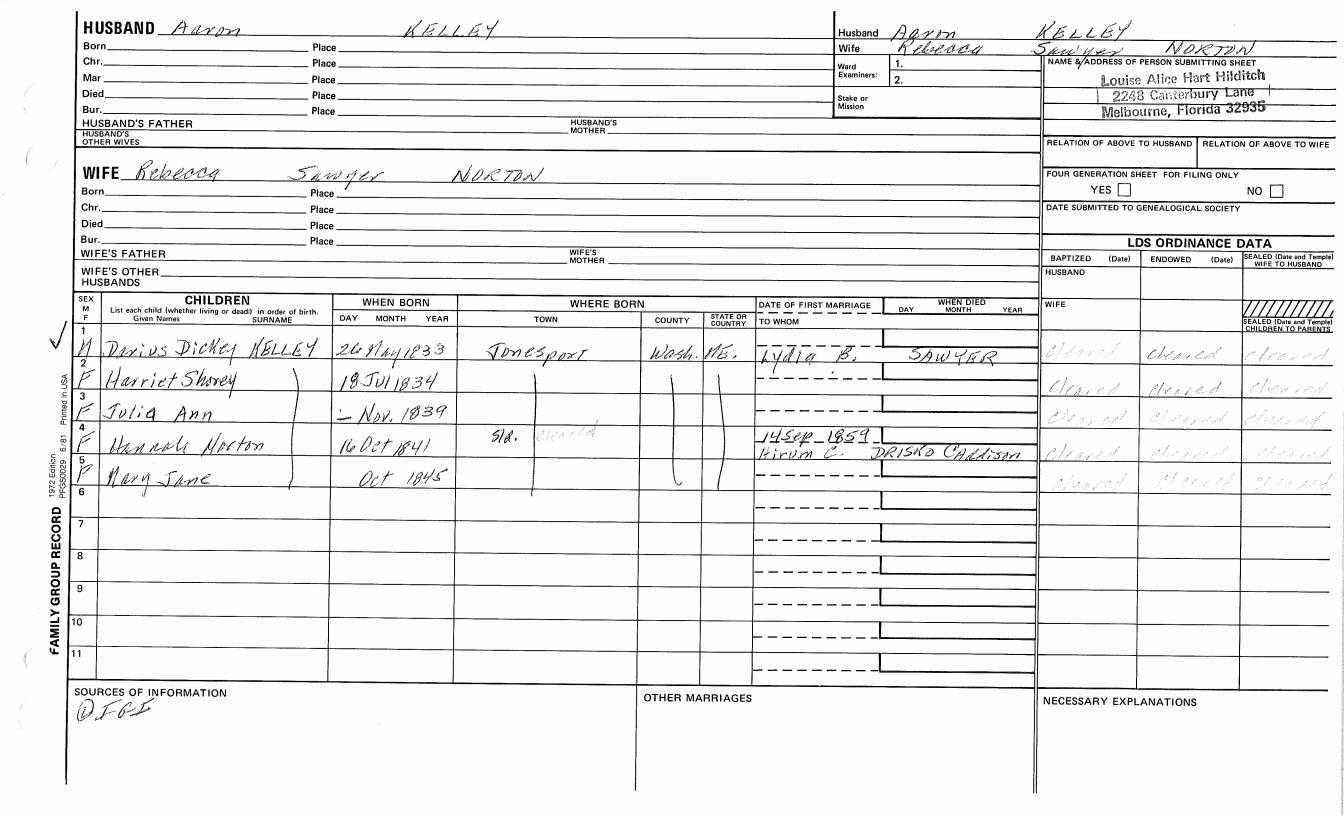 HUSBAND Aaron KELLEY
Born Place
Chr. Place
Mar Place
Died Place
Bur. Place
HUSBAND'S FATHER HUSBAND'S MOTHER
HUSBAND'S OTHER WIVES
Husband Aaron KELLEY
Wife Rebecca Sawyer NORTON
Ward Examiners: 1.
2.
Stake or Mission
NAME & ADDRESS OF PERSON SUBMITTING SHEET
Louise Alice Hart Hilditch
2248 Canterbury Lane
Melbourne, Florida 32935
RELATION OF ABOVE TO HUSBAND RELATION OF ABOVE TO WIFE
FOUR GENERATION SHEET FOR FILING ONLY
YES NO
DATE SUBMITTED TO GENEALOGICAL SOCIETY
WIFE Rebecca Sawyer NORTON
Born Place
Chr. Place
Died Place
Bur. Place
WIFE'S FATHER WIFE'S MOTHER
WIFE'S OTHER HUSBANDS
LDS ORDINANCE DATA
BAPTIZED (Date) ENDOWED (Date) SEALED (Date and Temple) WIFE TO HUSBAND
HUSBAND
WIFE
SEALED (Date and Temple) CHILDREN TO PARENTS
SEX M F CHILDREN WHEN BORN WHERE BORN DATE OF FIRST MARRIAGE WHEN DIED
List each child (whether living or dead) in order of birth.
Given Names SURNAME DAY MONTH YEAR TOWN COUNTY STATE OR COUNTRY TO WHOM DAY MONTH YEAR
1 M Darius Dickey KELLEY 26 May 1833 Jonesport Wash. ME. Lydia B. SAWYER cleared cleared cleared
2 F Harriet Shorey 18 Jul 1834 cleared cleared cleared
3 F Julia Ann – Nov. 1839 cleared cleared cleared
4 F Hannah Norton 16 Oct 1841 sld. cleared 14 Sep 1859
Hirum C. DRISKO Addison cleared cleared cleared
5 F Mary Jane Oct 1845 cleared cleared cleared
6
7
8
9
10
11
FAMILY GROUP RECORD 1972 Edition PFGS0029 6/81 Printed in USA
SOURCES OF INFORMATION
① IGI
OTHER MARRIAGES
NECESSARY EXPLANATIONS